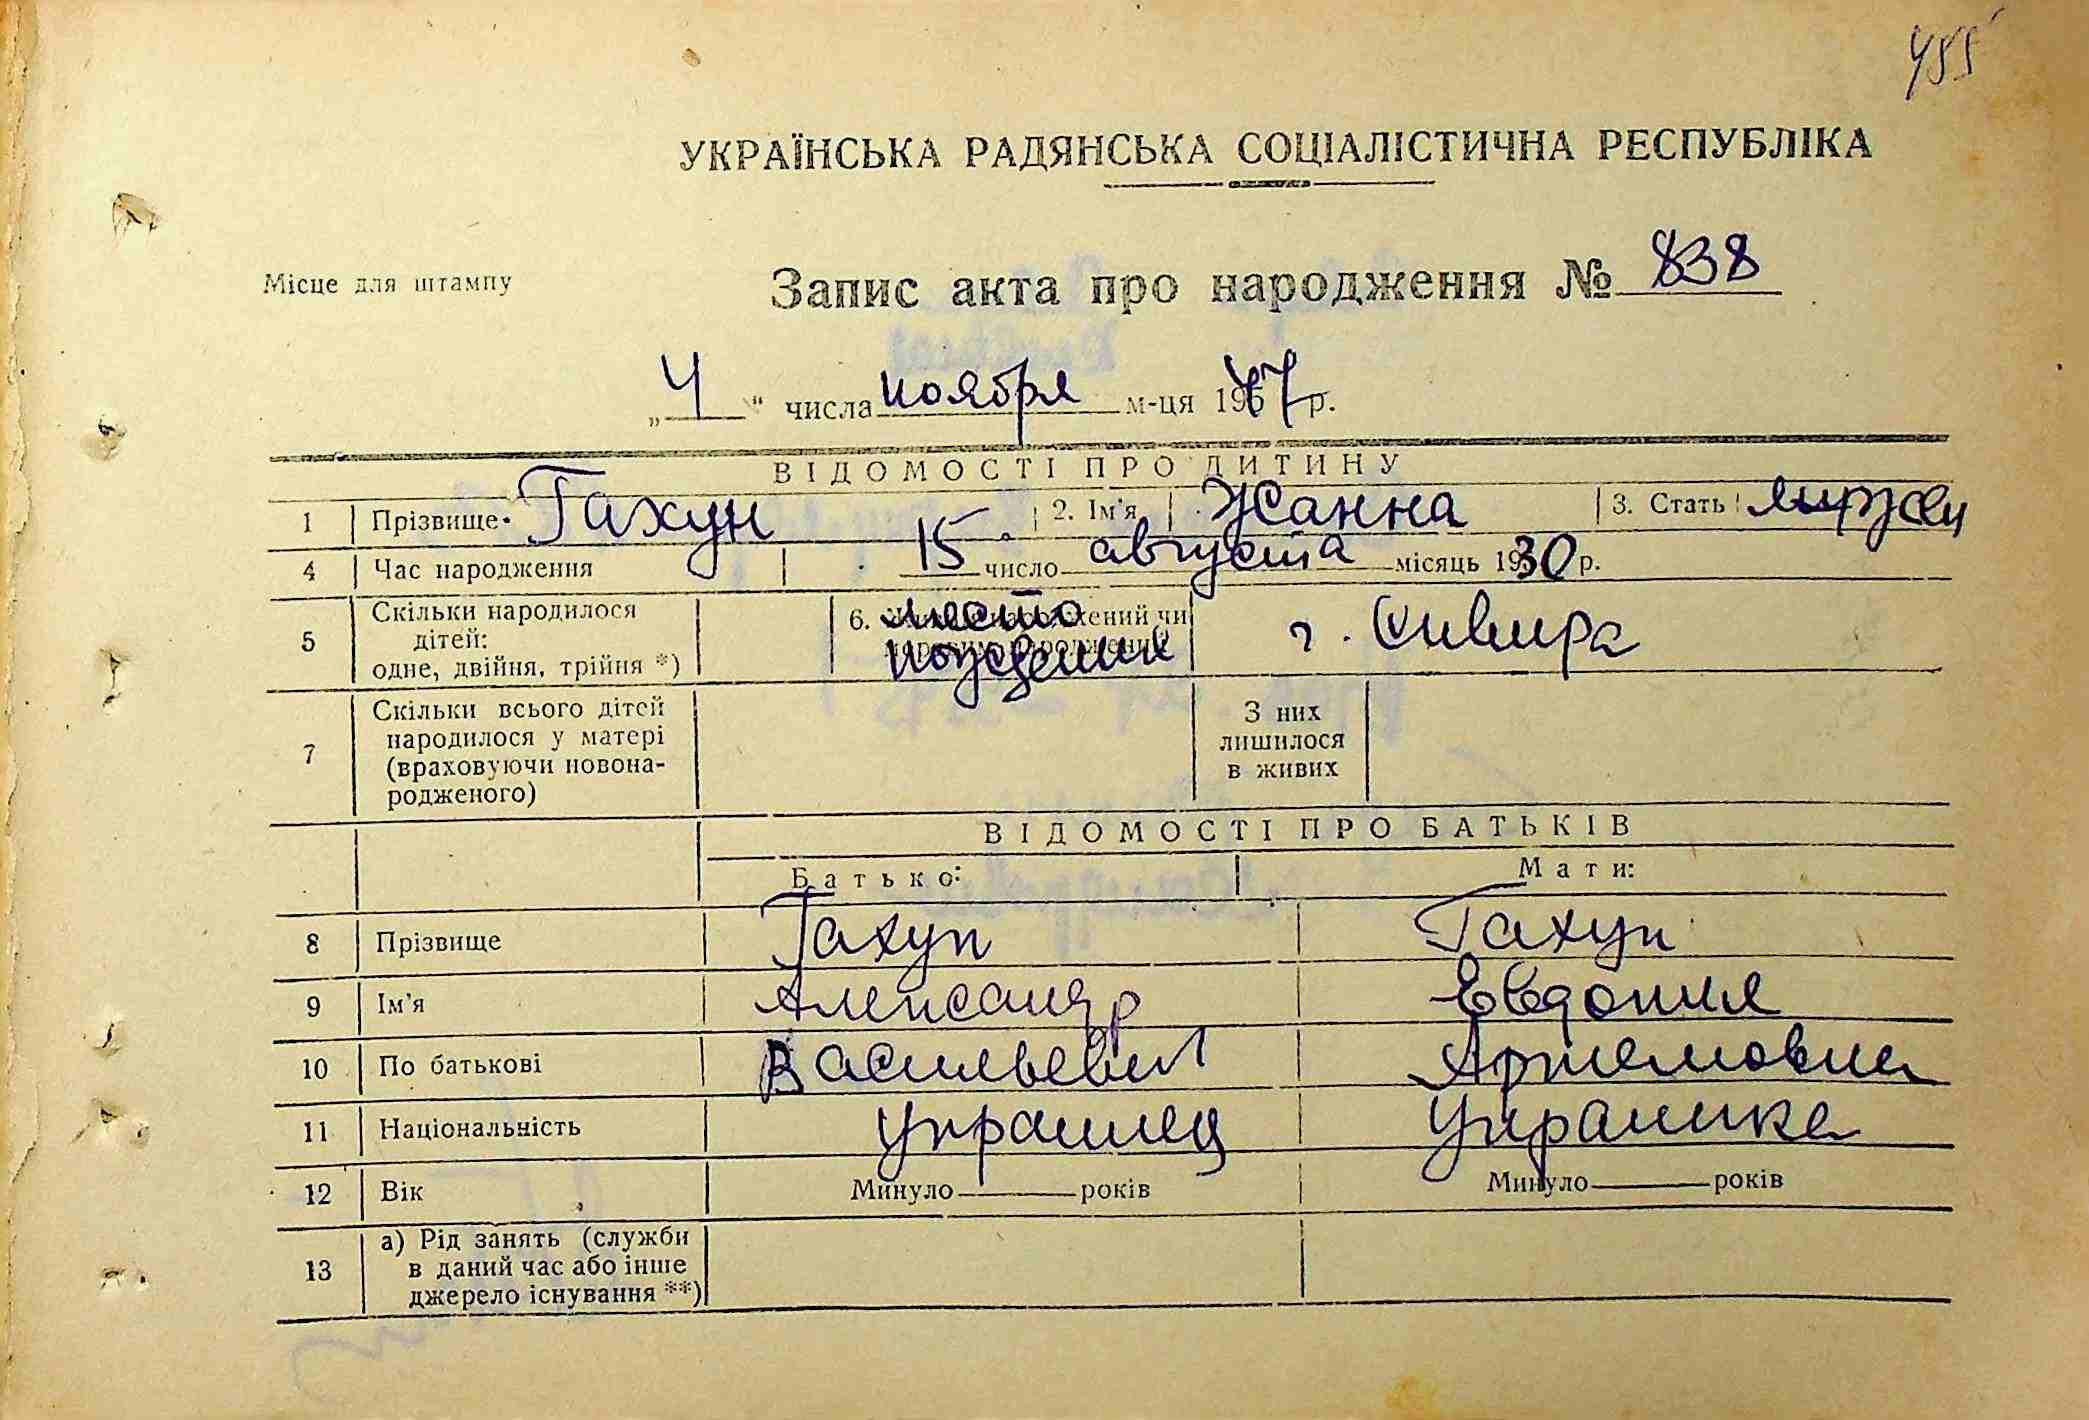 485
УКРАЇНСЬКА РАДЯНСЬКА СОЦІАЛІСТИЧНА РЕСПУБЛІКА
Місце для штампу
Запис акта про народження № 838
„4“ числа ноября м-ця 1947 р.
ВІДОМОСТІ ПРО ДИТИНУ
1 Прізвище Гахун 2. Ім'я Жанна 3. Стать
4 Час народження 15 число августа місяць 1930 р.
5 Скільки народилося дітей: одне, двійня, трійня *) 6. место рождения г.
7 Скільки всього дітей народилося у матері (враховуючи новонародженого) З них лишилося в живих
ВІДОМОСТІ ПРО БАТЬКІВ
Батько: Мати:
8 Прізвище Гахун Гахун
9 Ім'я Александр Евдокия
10 По батькові Васильевич Артемовна
11 Національність украинец Украинка
12 Вік Минуло років Минуло років
13 а) Рід занять (служби в даний час або інше джерело існування **)